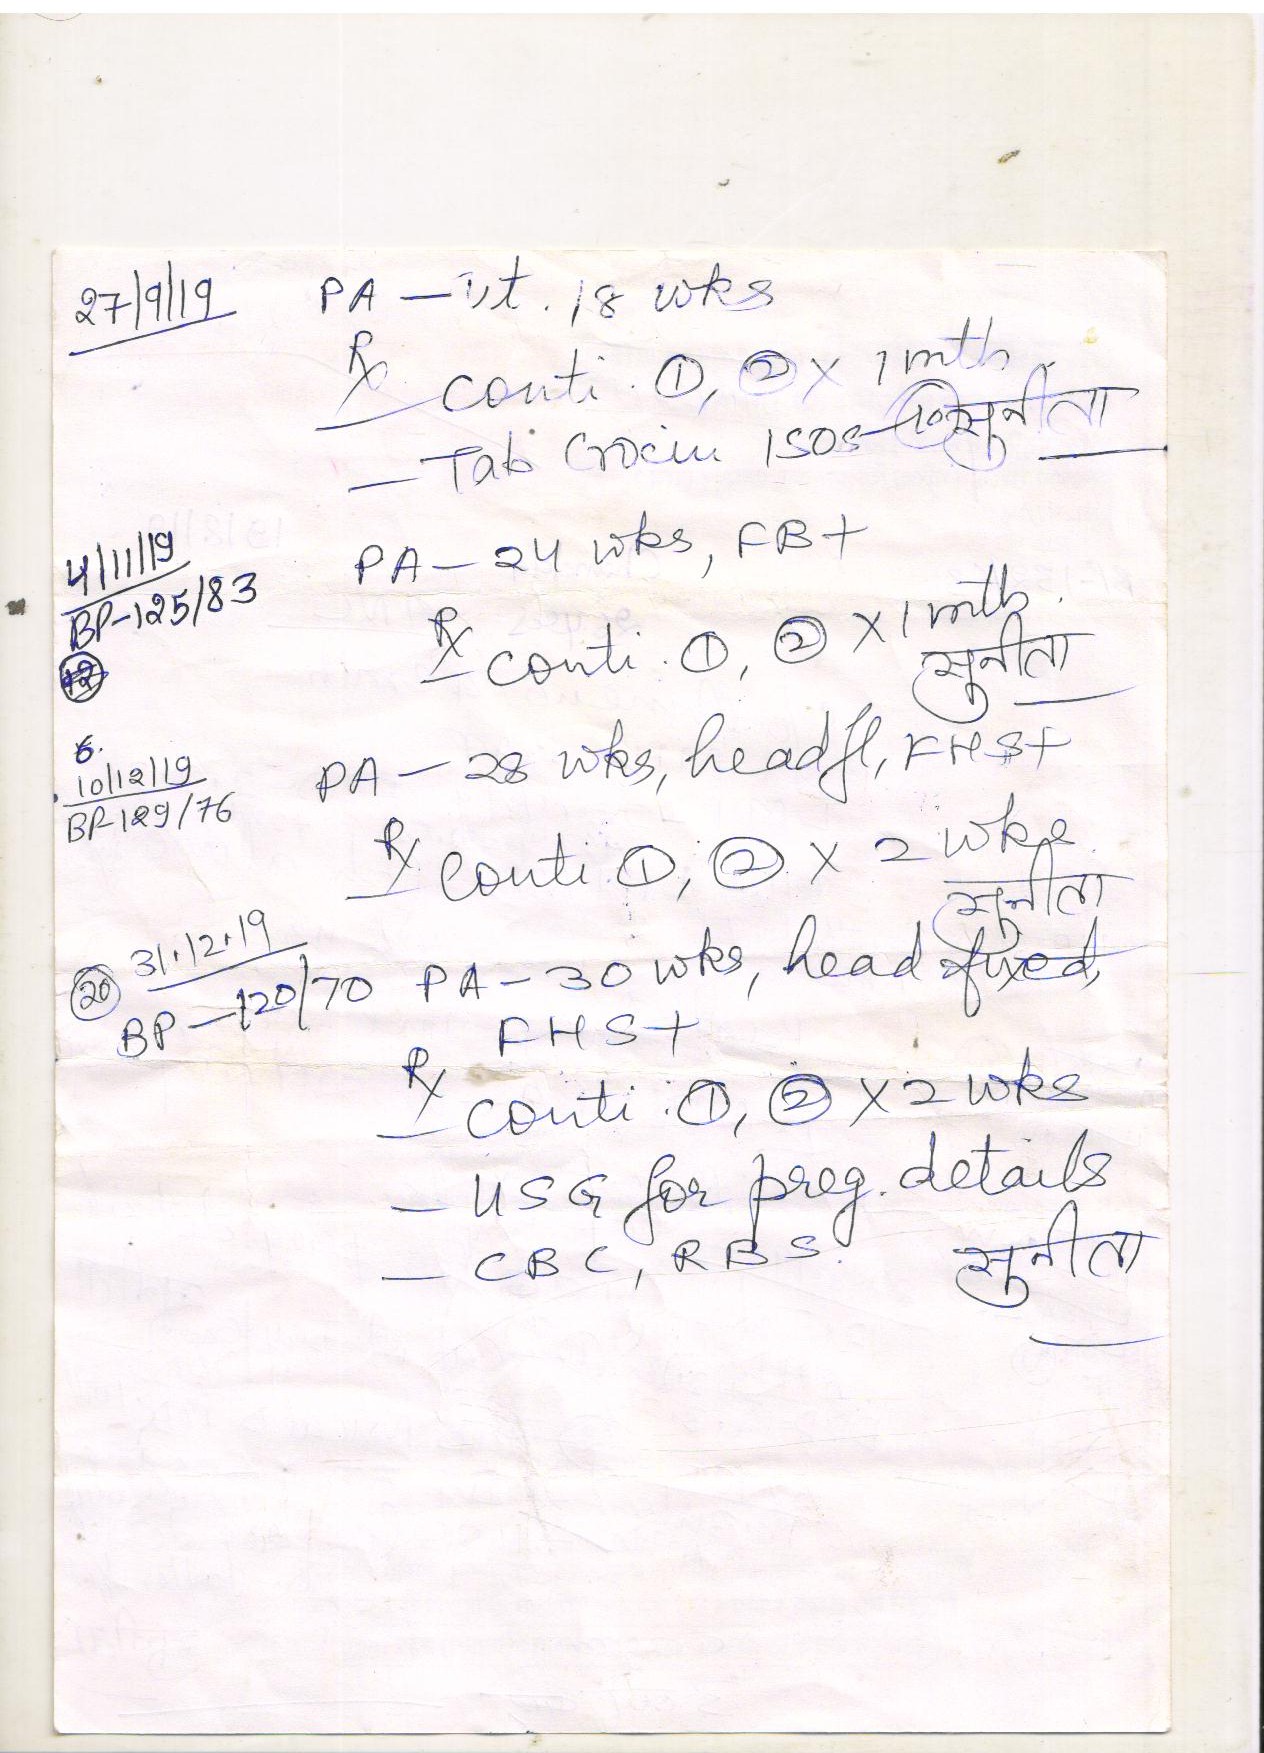 27/9/19 PA - ut. 18 wks
Rx conti. ①, ② x 1 mth.
- Tab Crocin 1SOS - ⑩ सुनीता
4/11/19 PA - 24 wks, FB+
BP-125/83
⑫ Rx conti. ①, ② x 1 mth.
सुनीता
10/12/19 PA - 28 wks, head fl, FHS+
BP-129/76
Rx conti ①, ② x 2 wks.
सुनीता
31.12.19
⑳ BP - 120/70 PA - 30 wks, head fixed,
FHS+
Rx conti. ①, ② x 2 wks
- USG for preg. details
- CBC, RBS. सुनीता